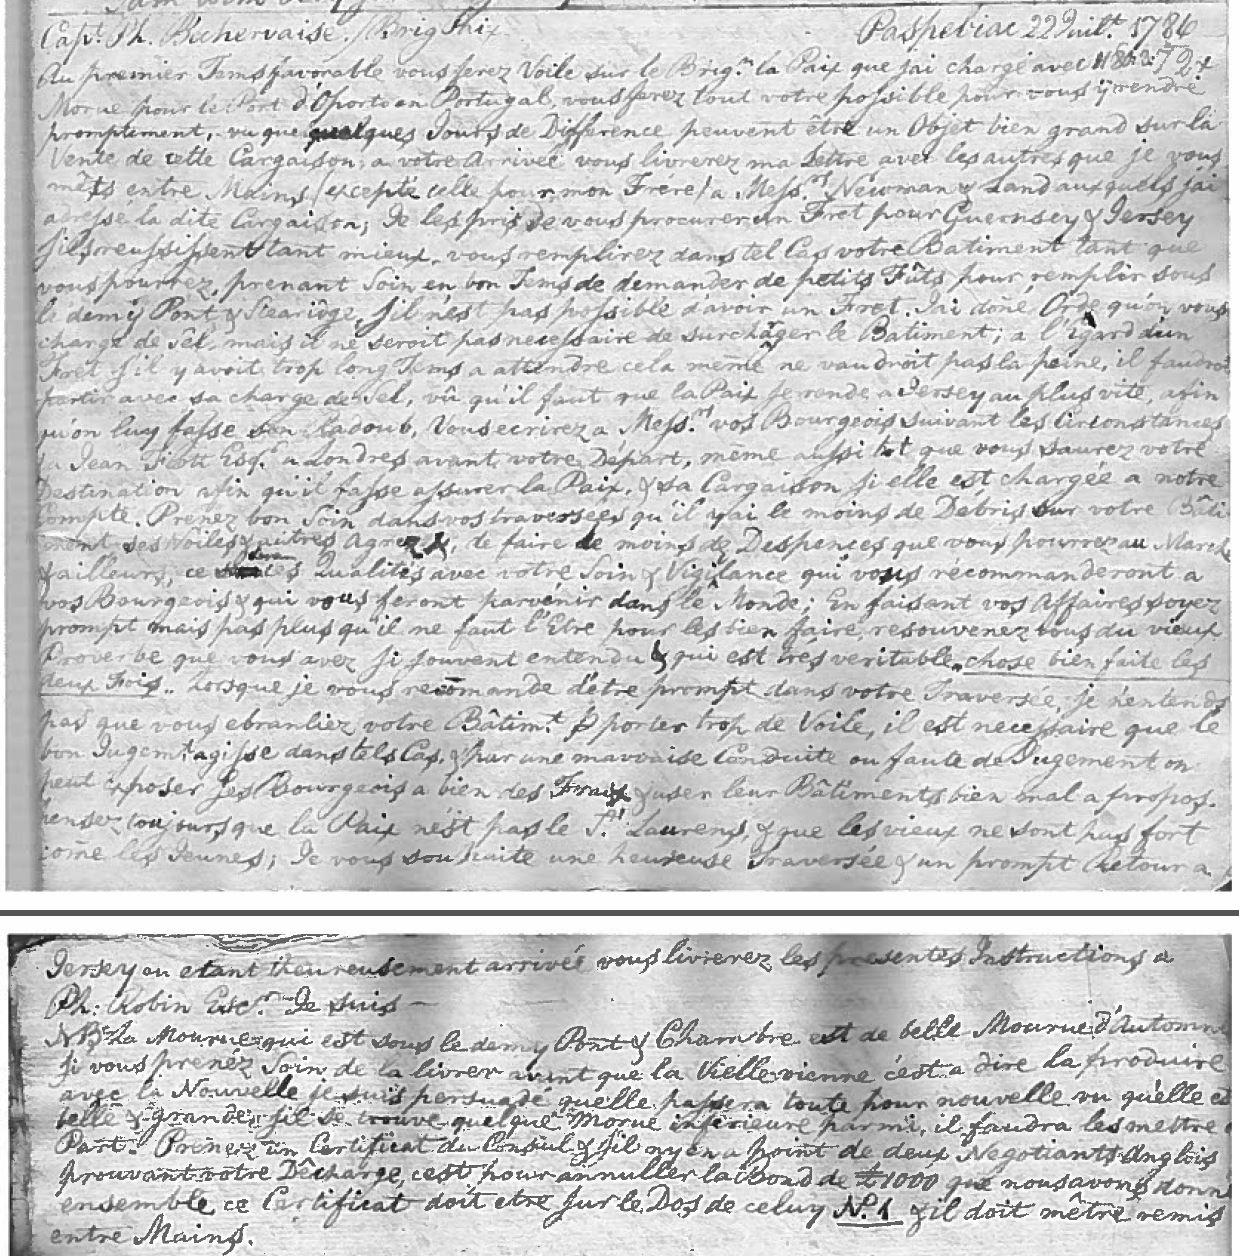 Capt. Ph. Bichervaise. / Brig Paix Paspebiac 22 Juilt. 1786
Au premier Tems favorable vous ferez Voile sur le Brign. la Paix que jai chargé avec
Morue pour le Port d'Oporto en Portugal, vous ferez tout votre possible pour vous ÿ rendre
promptement, vu que quelques Jours de Difference peuvent être un Objet bien grand sur la
Vente de cette Cargaison, a votre Arriveé vous livrerez ma Lettre avec les autres que je vous
mêts entre Mains / excepté celle pour mon Frére / a Messrs. Newman & Land auxquels jai
adressé la dite Cargaison; Je les pris de vous procurer un Fret pour Guernsey & Jersey
s'ils reussissent tant mieux, vous remplirez dans tel Cas votre Batiment tant que
vous pourrez, prenant Soin en bon Tems de demander de petits Fûts pour remplir sous
le demÿ Pont & Stearidge, s'il n'est pas possible d'avoir un Fret. J'ai doné Orde qu'on vous
charge de Sêl, mais il ne seroit pas necessaire de surchager le Batiment; a l'egard d'un
Fret s'il y avoit trop long Tems a attendre cela même ne vaudroit pas la peine, il faudroi
partir avec sa charge de Sel, vû qu'il faut que la Paix se rende a Jersey au plus vite, afin
qu'on luy fasse son Radoub, Vous ecrirez a Messrs. vos Bourgeois suivant les Circonstances
& a Jean Fiott Esqr. a Londres avant votre Départ, même aussi tot que vous saurez votre
Destination afin qu'il fasse assurer la Paix, & sa Cargaison si elle est chargée a notre
Compte. Prenez bon Soin dans vos traversées qu'il y ai le moins de Débris sur votre Bâti
ment ses Voiles & autres Agrez, de faire le moins de Despences que vous pourrez au Marché
& ailleurs, ce sont les Qualités avec votre Soin & Vigilance qui vous recommanderont a
vos Bourgeois & qui vous feront parvenir dans le Monde; En faisant vos Affaires soyez
prompt mais pas plus qu'il ne faut l'Etre pour les bien faire, resouvenez vous du vieux
Proverbe que vous avez si souvent entendu & qui est tres veritable, chose bien faite les
deux Fois.. Lorsque je vous recomande d'étre prompt dans votre Traversée, je n'entends
pas que vous ebranliez votre Bâtimt. P porter trop de Voile, il est necessaire que le
bon Jugemt. agisse dans tels Cas, & par une mauvaise Conduite ou faute de Jugement on
peut exposer ses Bourgeois a bien des Fraix & user leur Bâtiments bien mal a propos.
Pensez toujours que la Paix n'est pas le St. Laurens, & que les vieux ne sont pas fort
come les Jeunes; Je vous souhaite une heureuse Traversée & un prompt Retour a
Jersey ou etant heureusement arrivé vous livrerez les presentes Instructions a
Ph: Robin Esqr. Je suis —
NB. La Mourue qui est sous le demy Pont & Chambre est de belle Mourue d'Automne
si vous prenéz Soin de la livrer avant que la Vielle vienne c'ést a dire la produire
avec la Nouvelle je suis persuadé quelle passera toute pour nouvelle vu qu'elle est
belle & grande, s'il se trouve quelque Morue inférieure parmi, il faudra les mettre a
Part. Prenez un Certificat du Consul & s'il ny en a point de deux Negotiants Anglois
prouvant votre Décharge, cest pour annuller la Bond de £1000 que nous avons donné
ensemble ce Certificat doit etre sur le Dos de celuy No. 1 & il doit mêtre remis
entre Mains.